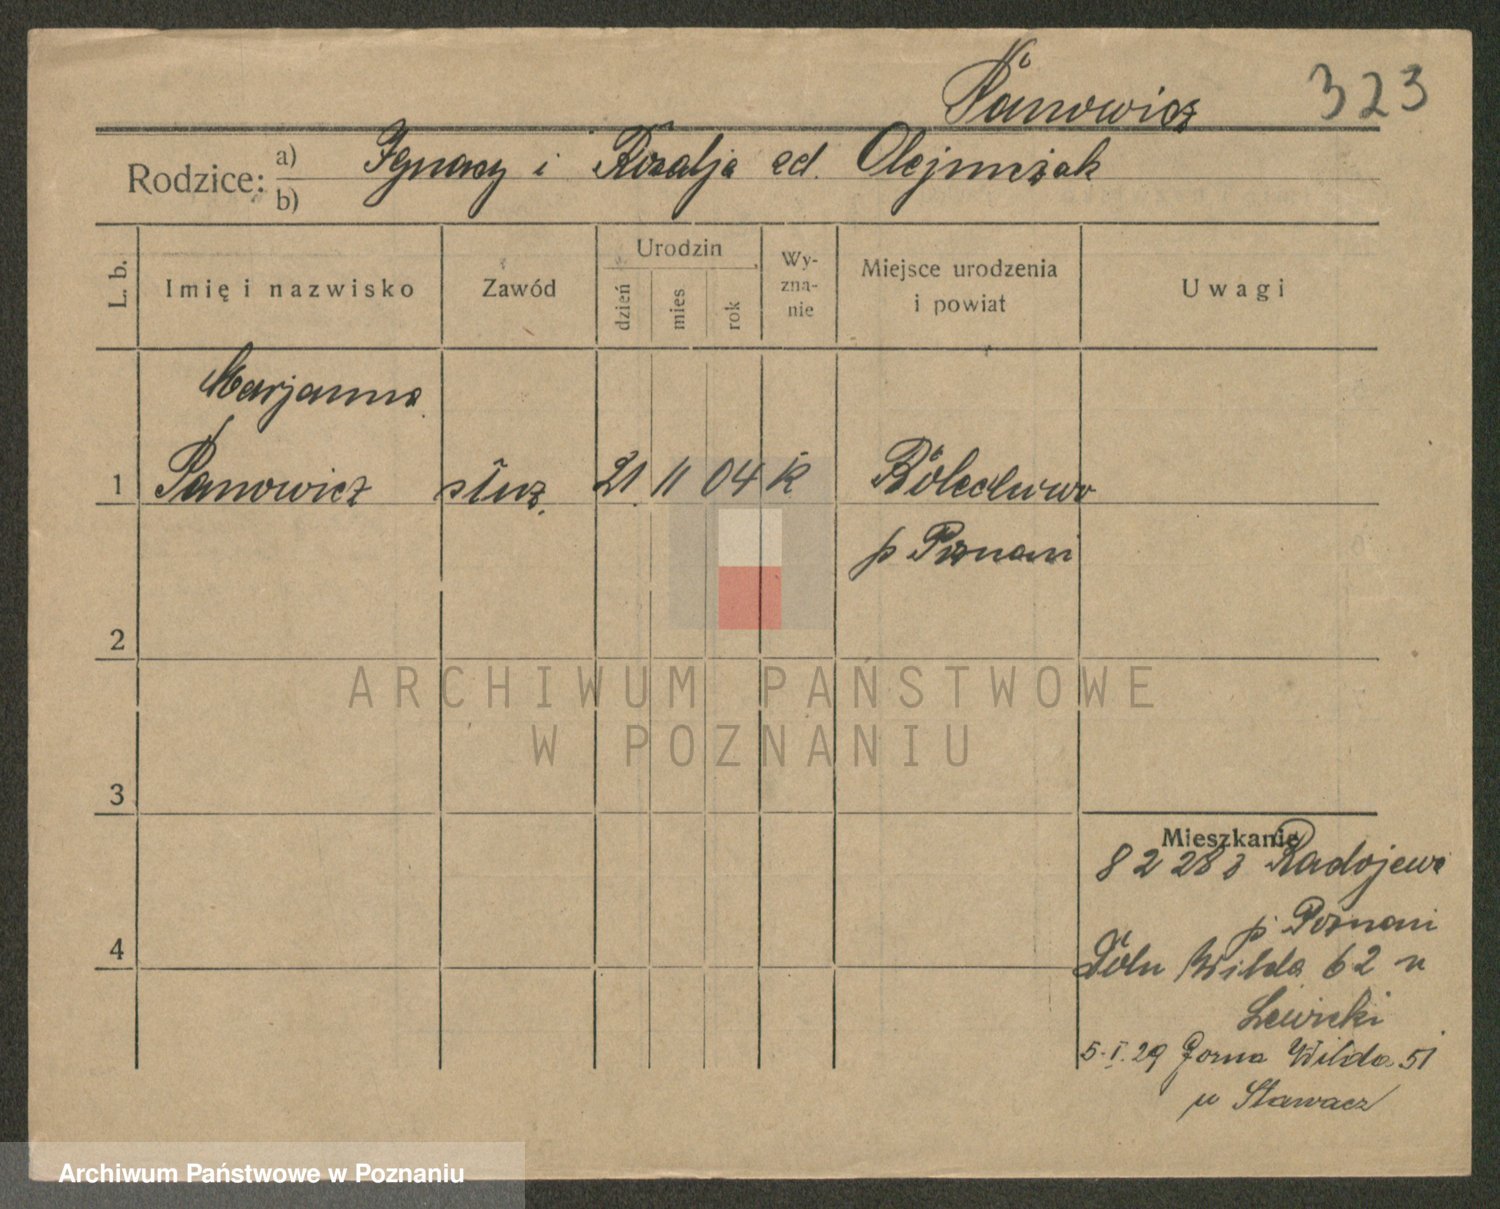 Panowicz 323
Rodzice: a) b) Ignacy i Rozalja zd. Olejniczak
L. b. Imię i nazwisko Zawód Urodzin dzień mies rok Wy-zna-nie Miejsce urodzenia i powiat Uwagi
Marjanna
1 Panowicz służ. 21 11 04 k Bolechowo
p Poznani
2
ARCHIWUM PAŃSTWOWE
W POZNANIU
3
Mieszkanie
8 2 28 z Radojewo
p Poznani
4 Doln Wilda 62 u
Lewicki
5. I. 29 Gorna Wilda 51
u Stawacz
Archiwum Państwowe w Poznaniu